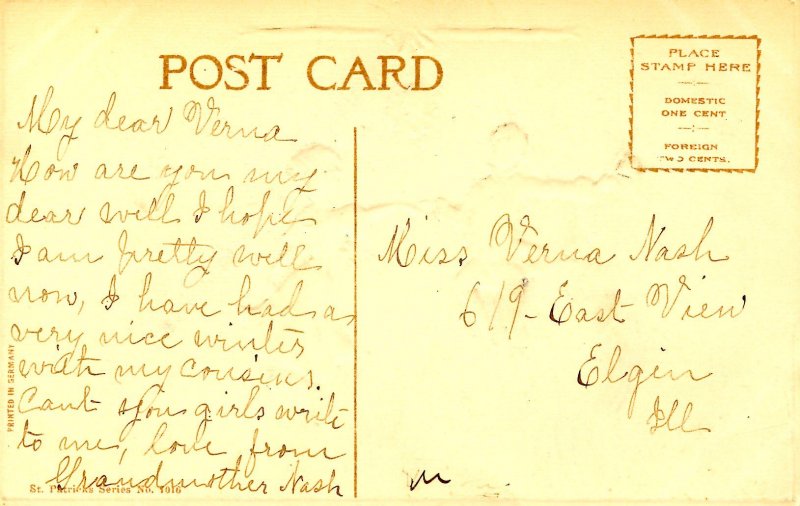 POST CARD
PLACE
STAMP HERE
DOMESTIC
ONE CENT
FOREIGN
TWO CENTS.
My dear Verna
How are you my
dear well I hope
I am pretty well
now, I have had a
very nice winter
with my cousins.
Cant you girls write
to me, love from
Grandmother Nash
Miss Verna Nash
619 - East View
Elgin
Ill
PRINTED IN GERMANY
St. Patrick's Series No. 1016